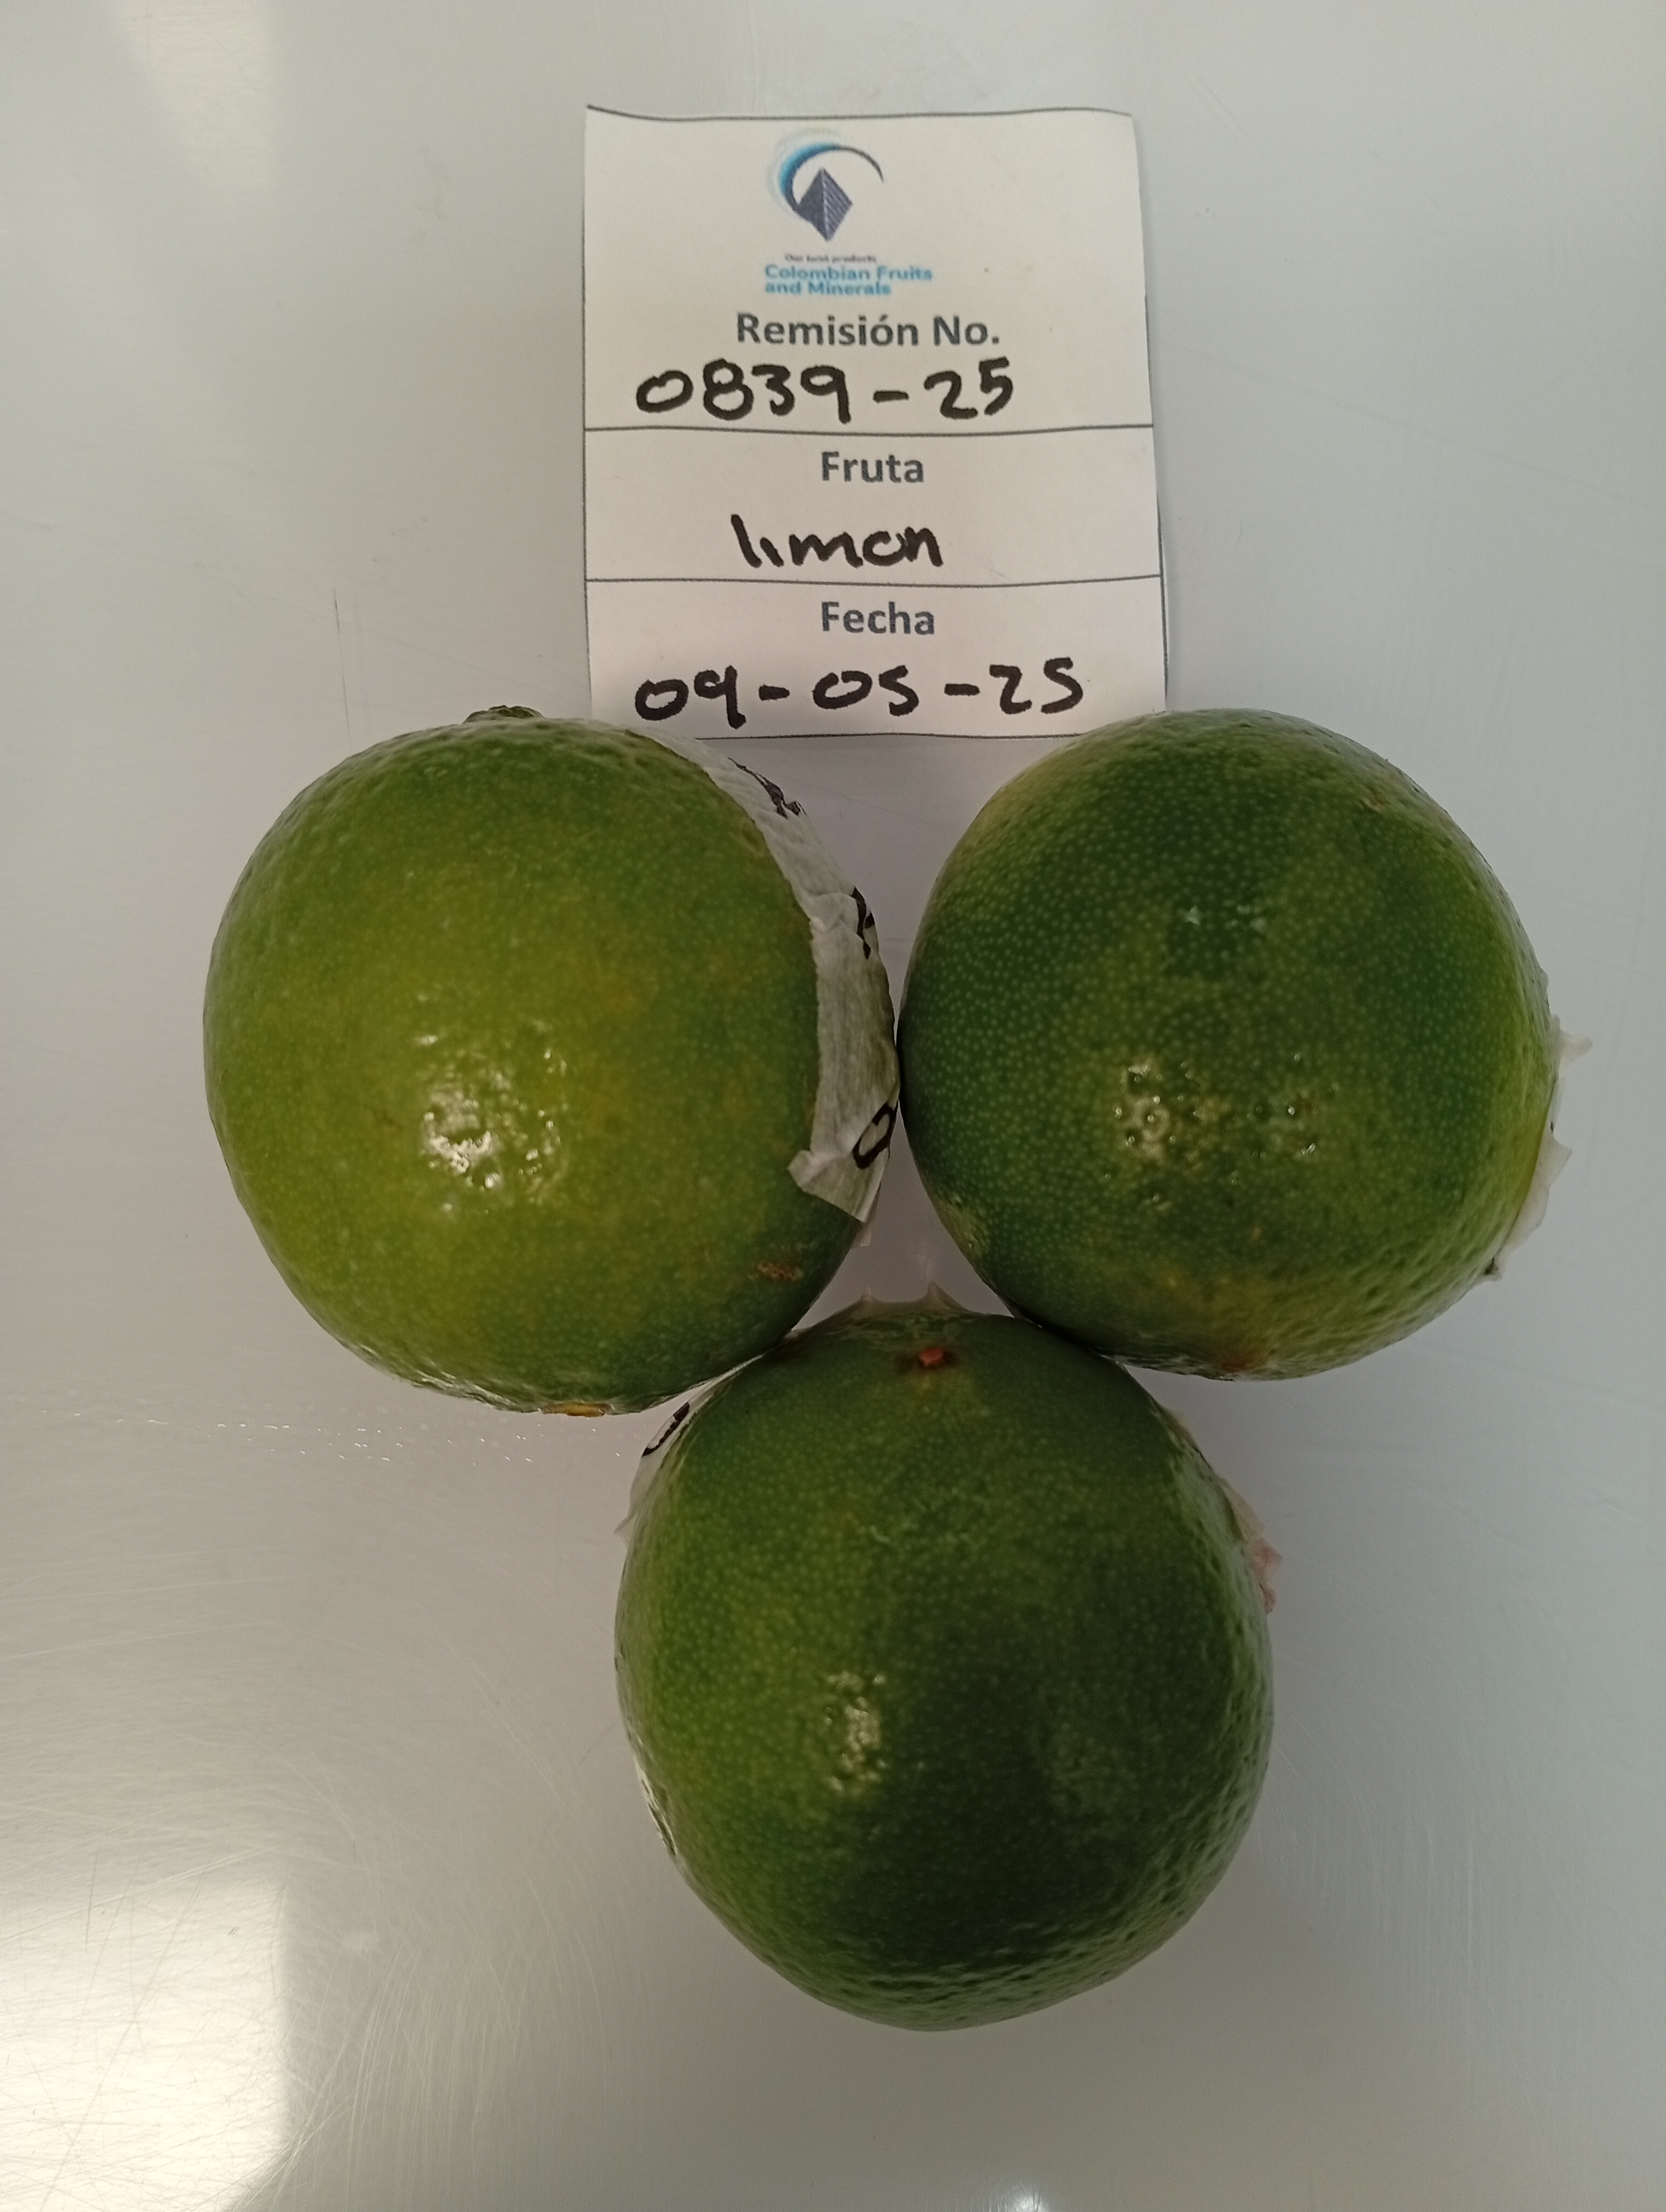 Our land products
Colombian Fruits
and Minerals
Remisión No.
0839-25
Fruta
limon
Fecha
09-05-25